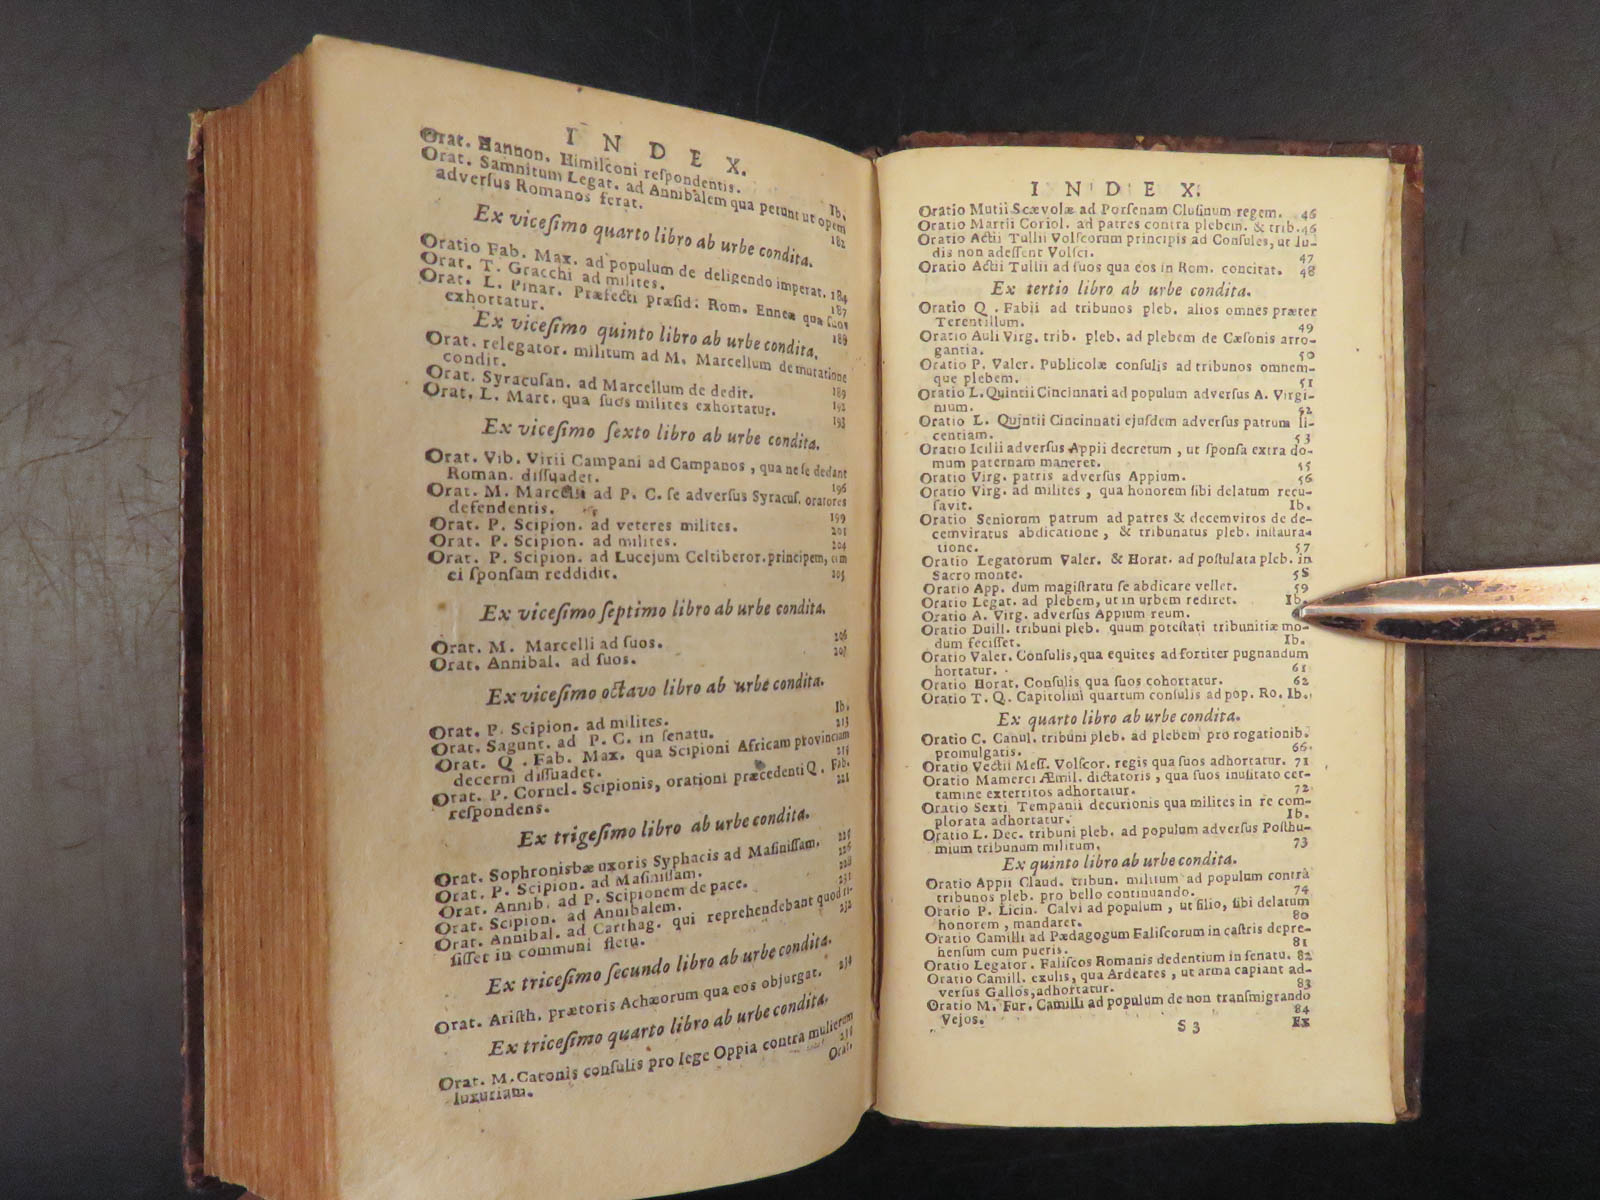 INDEX.
Orat. Hannon. Himilſconi reſpondentis. Ib.
Orat. Samnitum Legat. ad Annibalem qua petunt ut opem
adverſus Romanos ferat. 182
Ex viceſimo quarto libro ab urbe condita.
Oratio Fab. Max. ad populum de deligendo imperat. 184
Orat. T. Gracchi ad milites. 187
Orat. L. Pinar. Præfecti præſid. Rom. Enneæ qua ſuos
exhortatur. 189
Ex viceſimo quinto libro ab urbe condita.
Orat. relegator. militum ad M. Marcellum de mutatione
condit. 189
Orat. Syracuſan. ad Marcellum de dedit. 192
Orat. L. Mart. qua ſuos milites exhortatur. 193
Ex viceſimo ſexto libro ab urbe condita.
Orat. Vib. Virii Campani ad Campanos, qua ne ſe dedant
Roman. diſſuadet. 196
Orat. M. Marcelli ad P. C. ſe adverſus Syracuſ. oratores
defendentis. 199
Orat. P. Scipion. ad veteres milites. 201
Orat. P. Scipion. ad milites. 204
Orat. P. Scipion. ad Lucejum Celtiberor. principem, cum
ei ſponſam reddidit. 205
Ex viceſimo ſeptimo libro ab urbe condita.
Orat. M. Marcelli ad ſuos. 206
Orat. Annibal. ad ſuos. 207
Ex viceſimo octavo libro ab urbe condita.
Orat. P. Scipion. ad milites. Ib.
Orat. Sagunt. ad P. C. in ſenatu. 213
Orat. Q. Fab. Max. qua Scipioni Africam provinciam
decerni diſſuadet.
Orat. P. Cornel. Scipionis, orationi præcedenti Q. Fab.
reſpondens. 221
Ex trigeſimo libro ab urbe condita.
Orat. Sophronisbæ uxoris Syphacis ad Maſiniſſam. 225
Orat. P. Scipion. ad Maſiniſſam. 226
Orat. Annib. ad P. Scipionem de pace. 228
Orat. Scipion. ad Annibalem. 231
Orat. Annibal. ad Carthag. qui reprehendebant quod ri-
ſiſſet in communi fletu. 232
Ex triceſimo ſecundo libro ab urbe condita.
Orat. Ariſth. prætoris Achæorum qua eos objurgat. 234
Ex triceſimo quarto libro ab urbe condita.
Orat. M. Catonis conſulis pro lege Oppia contra mulierum
luxuriam.
Orat.
INDEX.
Oratio Mutii Scævolæ ad Porſenam Cluſinum regem. 46
Oratio Martii Coriol. ad patres contra plebem. & trib. 46
Oratio Actii Tullii Volſcorum principis ad Conſules, ut lu-
dis non adeſſent Volſci. 47
Oratio Actii Tullii ad ſuos qua eos in Rom. concitat. 48
Ex tertio libro ab urbe condita.
Oratio Q. Fabii ad tribunos pleb. alios omnes præter
Terentillum. 49
Oratio Auli Virg. trib. pleb. ad plebem de Cæſonis arro-
gantia. 50
Oratio P. Valer. Publicolæ conſulis ad tribunos omnem-
que plebem. 51
Oratio L. Quintii Cincinnati ad populum adverſus A. Virgi-
nium. 52
Oratio L. Quintii Cincinnati ejuſdem adverſus patrum li-
centiam. 53
Oratio Icilii adverſus Appii decretum, ut ſponſa extra do-
mum paternam maneret. 55
Oratio Virg. patris adverſus Appium. 56
Oratio Virg. ad milites, qua honorem ſibi delatum recu-
ſavit. Ib.
Oratio Seniorum patrum ad patres & decemviros de de-
cemviratus abdicatione, & tribunatus pleb. inſtaura-
tione. 57
Oratio Legatorum Valer. & Horat. ad poſtulata pleb. in
Sacro monte. 58
Oratio App. dum magiſtratu ſe abdicare vellet. 59
Oratio Legat. ad plebem, ut in urbem rediret. Ib.
Oratio A. Virg. adverſus Appium reum.
Oratio Duill. tribuni pleb. quum poteſtati tribunitiæ mo-
dum feciſſet. Ib.
Oratio Valer. Conſulis, qua equites ad fortiter pugnandum
hortatur. 61
Oratio Horat. Conſulis qua ſuos cohortatur. 62
Oratio T. Q. Capitolini quartum conſulis ad pop. Ro. Ib.
Ex quarto libro ab urbe condita.
Oratio C. Canul. tribuni pleb. ad plebem pro rogationib.
promulgatis. 66
Oratio Vectii Meſſ. Volſcor. regis qua ſuos adhortatur. 71
Oratio Mamerci Æmil. dictatoris, qua ſuos inuſitato cer-
tamine exterritos adhortatur. 72
Oratio Sexti Tempanii decurionis qua milites in re com-
plorata adhortatur. Ib.
Oratio L. Dec. tribuni pleb. ad populum adverſus Poſthu-
mium tribunum militum. 73
Ex quinto libro ab urbe condita.
Oratio Appii Claud. tribun. militum ad populum contra
tribunos pleb. pro bello continuando. 74
Oratio P. Licin. Calvi ad populum, ut filio, ſibi delatum
honorem, mandaret. 80
Oratio Camilli ad Pædagogum Faliſcorum in caſtris depre-
henſum cum pueris. 81
Oratio Legator. Faliſcos Romanis dedentium in ſenatu. 82
Oratio Camill. exulis, qua Ardeates, ut arma capiant ad-
verſus Gallos, adhortatur. 83
Oratio M. Fur. Camilli ad populum de non tranſmigrando
Vejos. 84
S 3 Ex